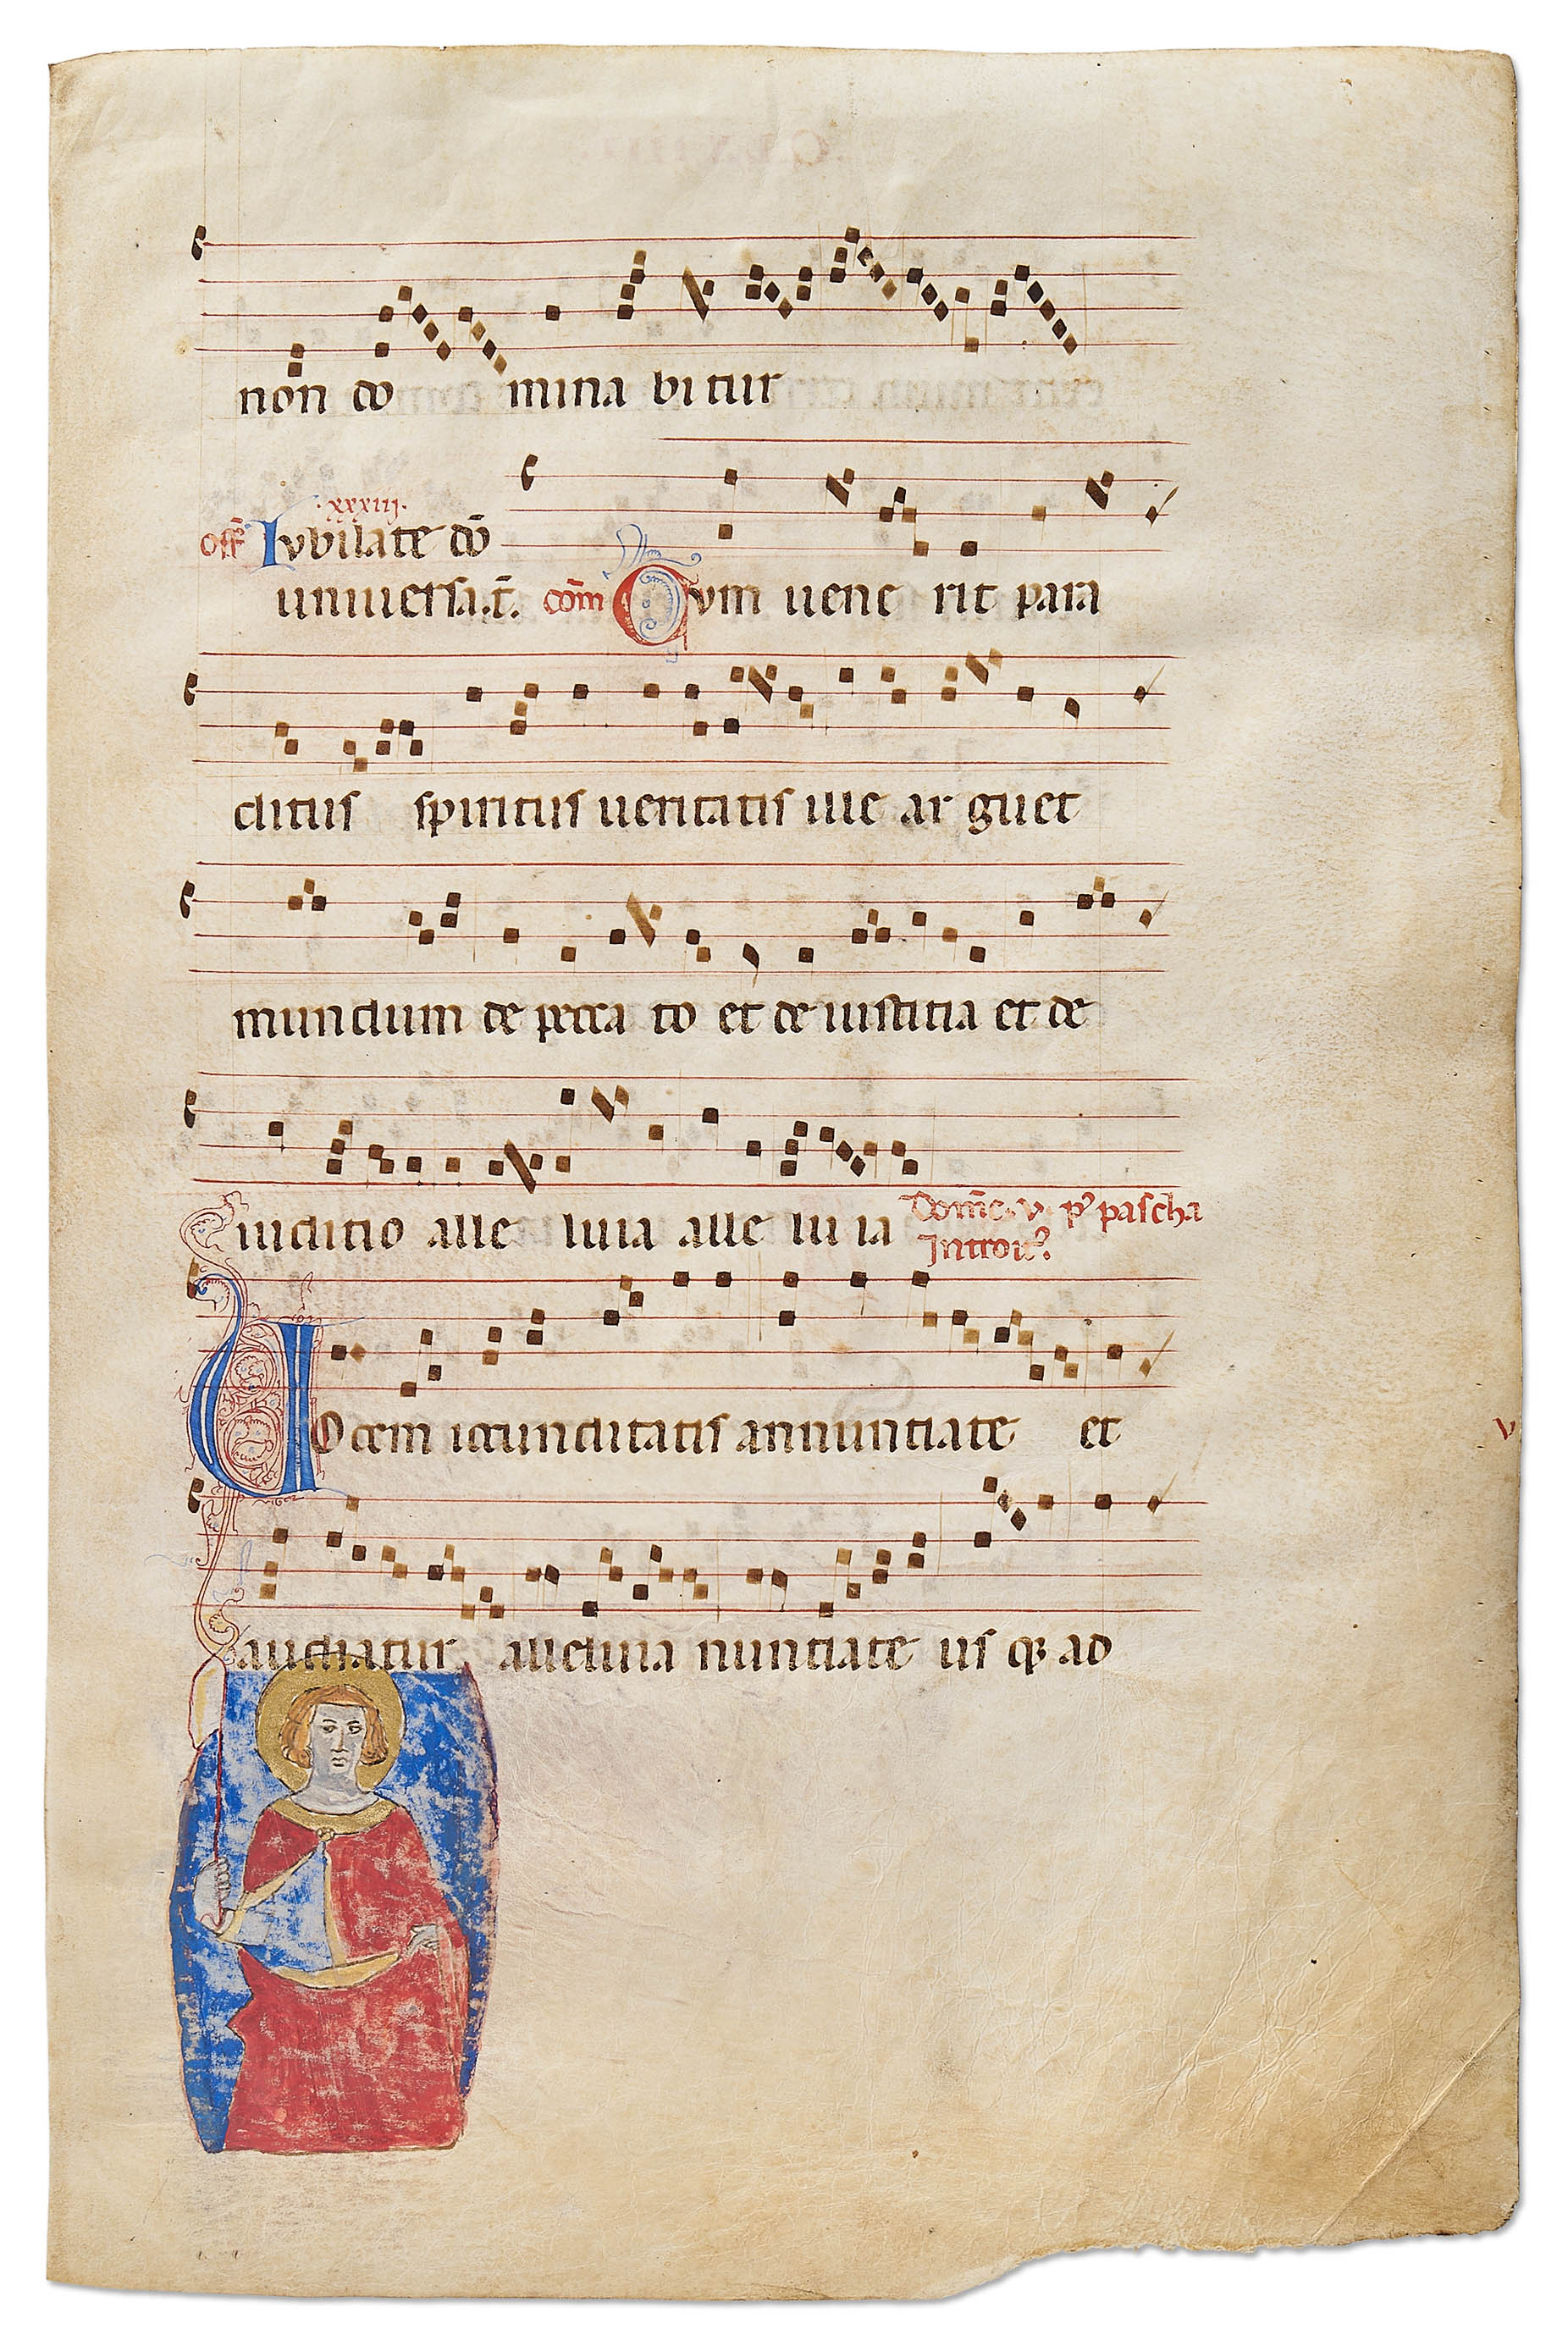 non do mina bitur
.xxxiij.
off̄ Iubilate dō
universa.t̄. com̄ Cum uene rit para
clitus spiritus ueritatis ille ar guet
mundum de pecca to et de iustitia et de
iudicio alle luia alle lu ia Dom̄c. v. p' pascha
Introit'.
Uocem iocunditatis annuntiate et
v
audiatur alleluia nuntiate us q; ad